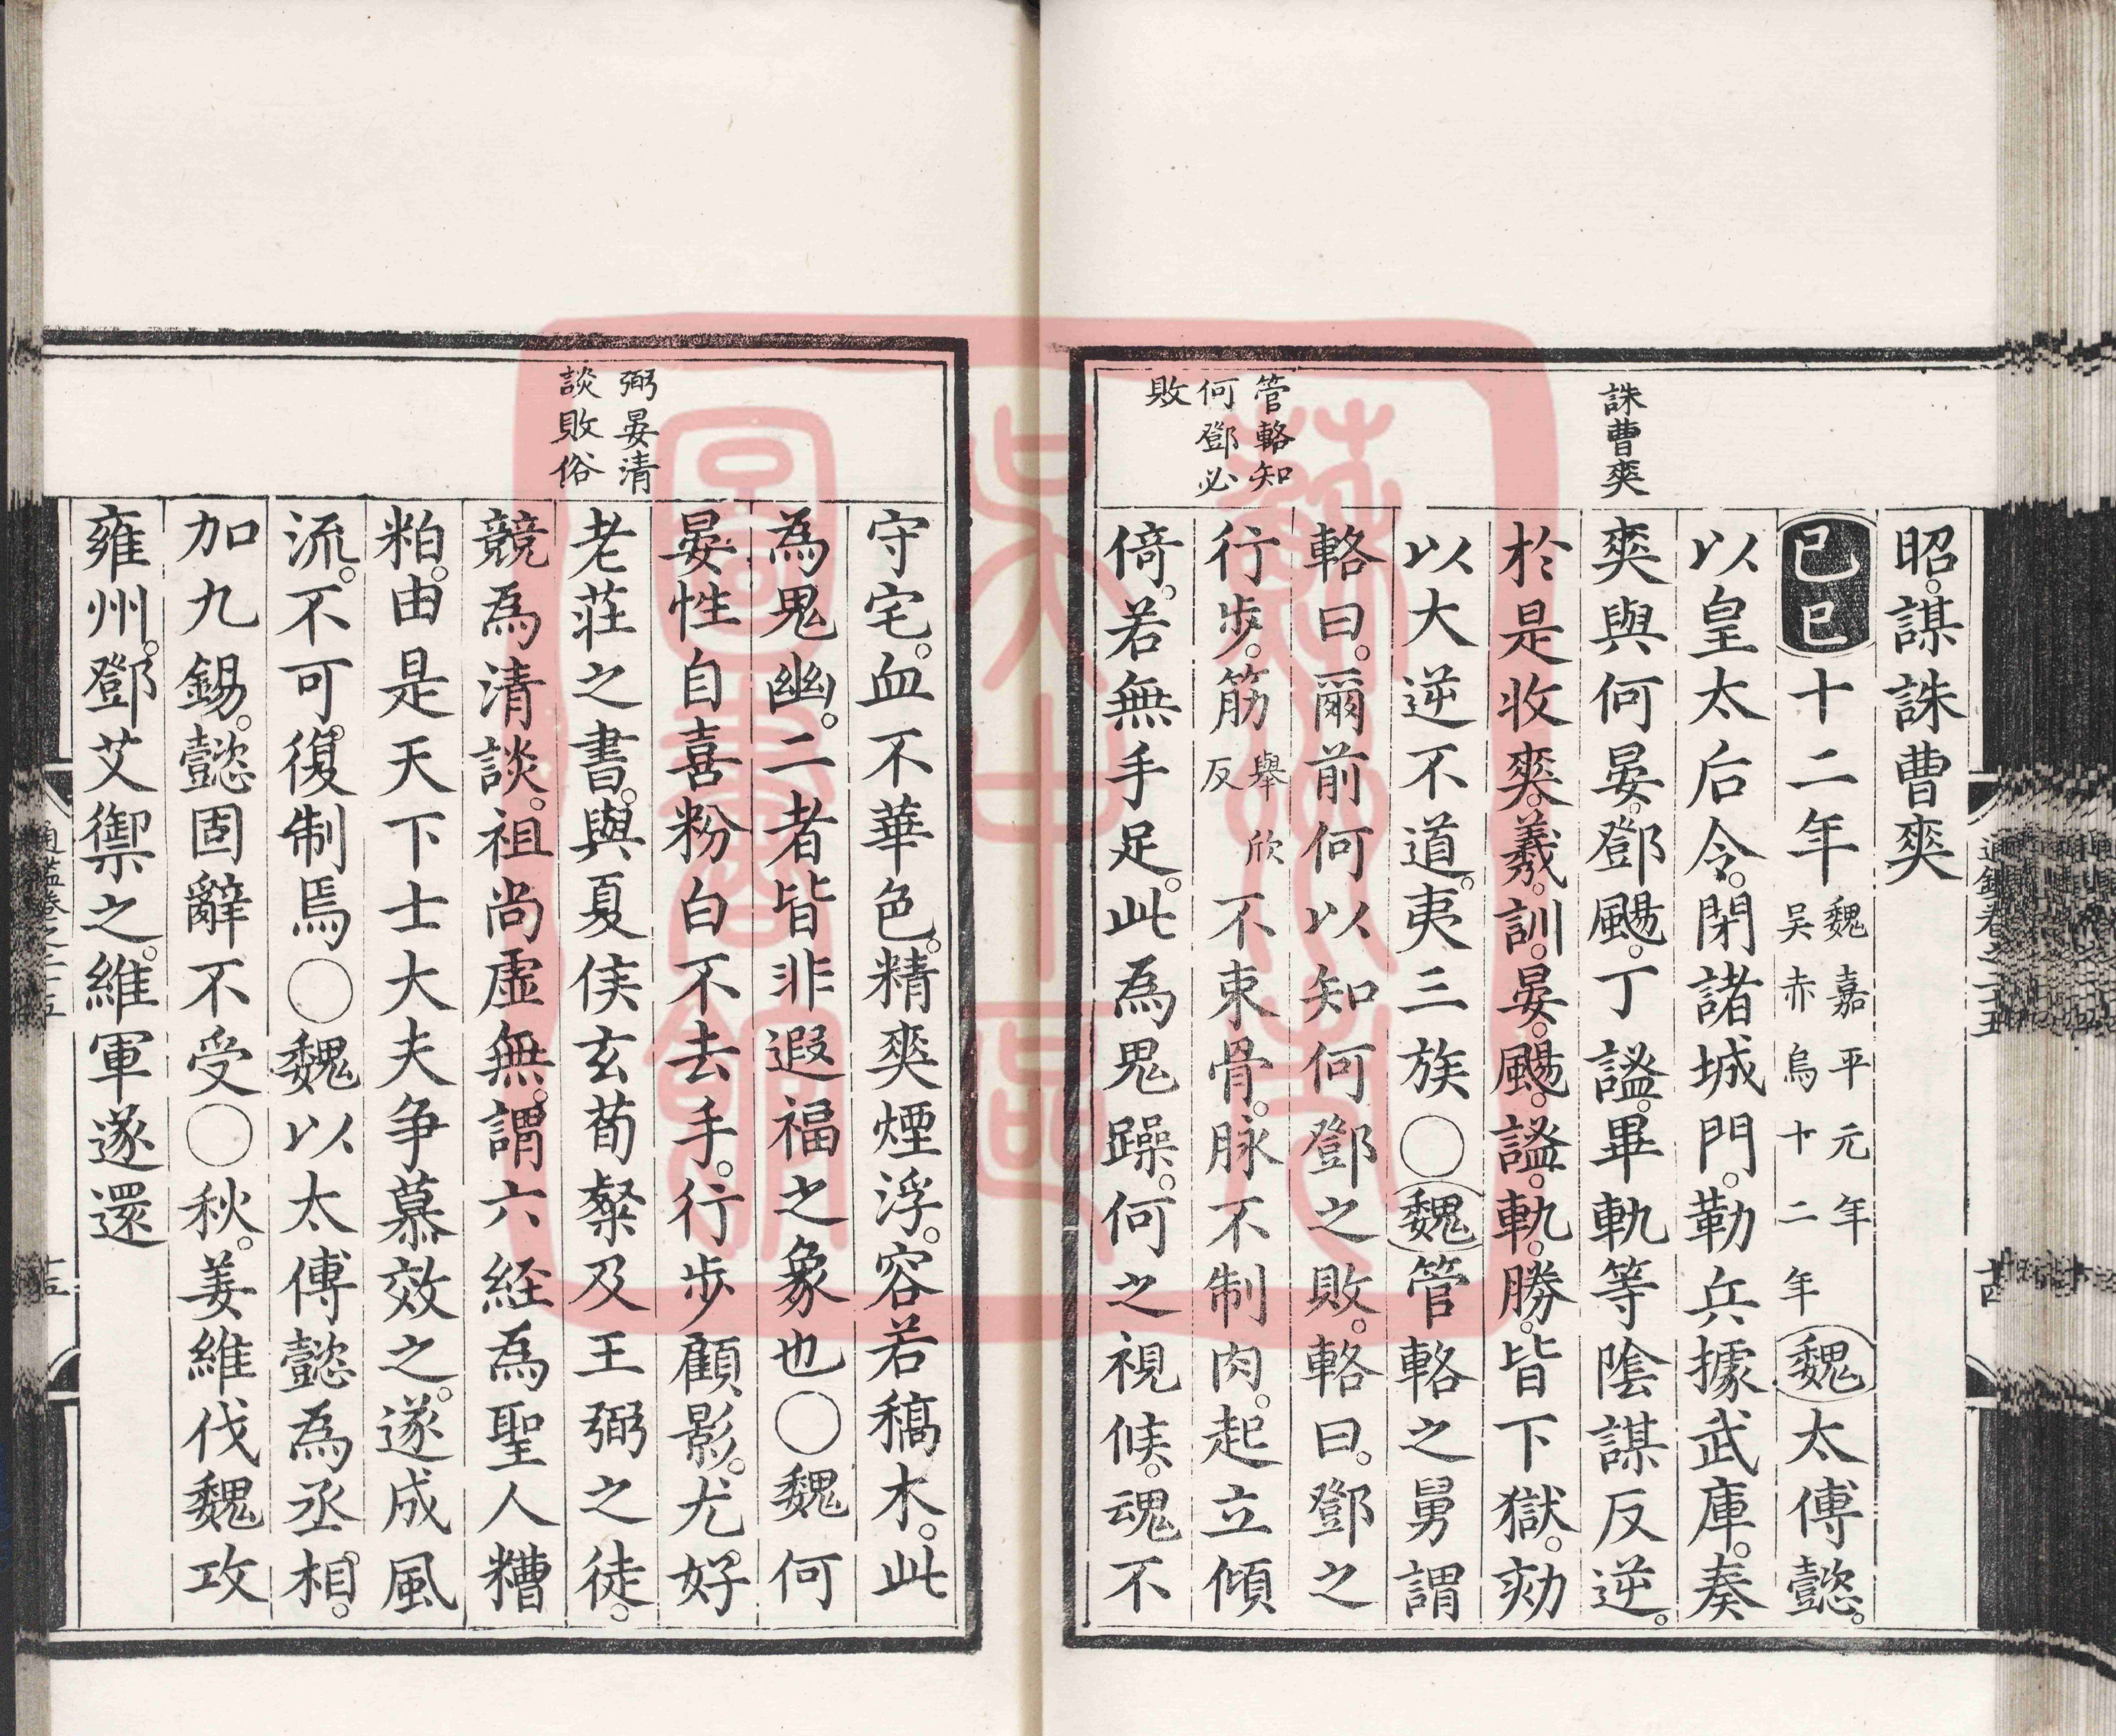 誅曹爽
管輅知
何鄧必
敗
昭。謀誅曹爽
己巳十二年魏嘉平元年吴赤烏十二年魏太傅懿。
以皇太后令。閉諸城門。勒兵據武庫。奏
爽與何晏。鄧颺。丁謐。畢軌等陰謀反逆。
於是收爽。羲。訓。晏。颺。謐。軌。勝。皆下獄。劾
以大逆不道。夷三族〇魏管輅之舅謂
輅曰。爾前何以知何鄧之敗。輅曰。鄧之
行步。筋舉欣反不束骨。脉不制肉。起立傾
倚。若無手足。此為鬼躁。何之視候。魂不
弼晏清
談敗俗
守宅。血不華色。精爽煙浮。容若稿木。此
為鬼幽。二者皆非遐福之象也〇魏何
晏性自喜粉白不去手。行步顧影。尤好
老莊之書。與夏侯玄荀粲及王弼之徒。
競為清談。祖尚虛無。謂六経為聖人糟
粕。由是天下士大夫争慕效之。遂成風
流。不可復制焉〇魏以太傅懿為丞相。
加九錫。懿固辭不受〇秋。姜維伐魏攻
雍州。鄧艾禦之。維軍遂還
蘇州市
吴中區
圖書館